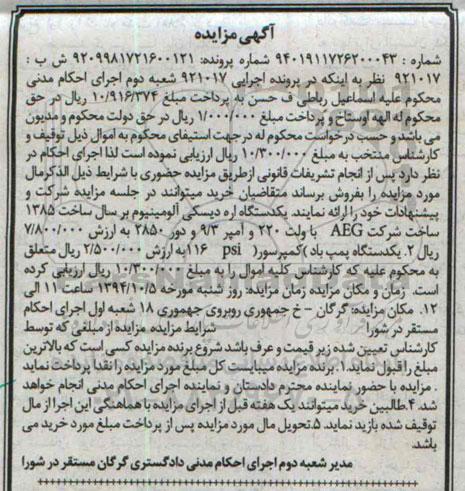 آگهی مزایده
شماره : ۹۴۰۱۹۱۱۷۲۶۲۰۰۰۴۳ شماره پرونده: ۹۲۰۹۹۸۱۷۲۱۶۰۰۱۲۱ ش ب :
۹۲۱۰۱۷ نظر به اینکه در پرونده اجرایی ۹۲۱۰۱۷ شعبه دوم اجرای احکام مدنی
محکوم علیه اسماعیل رباطی ف حسن به پرداخت مبلغ ۱۰/۹۱۶/۳۷۴ ریال در حق
محکوم له الهه اوستاخ و پرداخت مبلغ ۱/۰۰۰/۰۰۰ ریال در حق دولت محکوم و مدیون
می باشد و حسب درخواست محکوم له در جهت استیفای محکوم به اموال ذیل توقیف و
کارشناس منتخب به مبلغ ۱۰/۳۰۰/۰۰۰ ریال ارزیابی نموده است لذا اجرای احکام در
نظر دارد پس از انجام تشریفات قانونی ازطریق مزایده حضوری با شرایط ذیل الذکر مال
مورد مزایده را بفروش برساند متقاضیان خرید میتوانند در جلسه مزایده شرکت و
پیشنهادات خود را ارائه نمایند. یکدستگاه اره دیسکی آلومینیوم بر سال ساخت ۱۳۸۵
ساخت شرکت AEG با ولت ۲۲۰ و آمپر ۹/۳ و دور ۲۸۵۰ به ارزش ۷/۸۰۰/۰۰۰
ریال ۲. یکدستگاه پمپ باد )کمپرسور( psi ۱۱۶ به ارزش ۲/۵۰۰/۰۰۰ ریال متعلق
به محکوم علیه که کارشناس کلیه اموال را به مبلغ ۱۰/۳۰۰/۰۰۰ ریال ارزیابی کرده
است. زمان و مکان مزایده زمان مزایده: روز شنبه مورخه ۱۳۹۴/۱۰/۵ ساعت ۱۱ الی
۱۲. مکان مزایده: گرگان - خ جمهوری روبروی جهموری ۱۸ شعبه اول اجرای احکام
مستقر در شورا شرایط مزایده. مزایده از مبلغی که توسط
کارشناس تعیین شده زیر قیمت و عرف باشد شروع برنده مزایده کسی است که بالاترین
مبلغ را قبول نماید.۱. برنده مزایده میبایست کل مبلغ مورد مزایده را نقدا پرداخت نماید
. مزایده با حضور نماینده محترم دادستان و نماینده اجرای احکام مدنی انجام خواهد
شد. ۴.طالبین خرید میتوانند یک هفته قبل از اجرای مزایده با هماهنگی این اجرا از مال
توقیف شده بازید نماید. ۵.تحویل مال مورد مزایده پس از پرداخت مبلغ مورد خرید می
باشد.
مدیر شعبه دوم اجرای احکام مدنی دادگستری گرگان مستقر در شورا